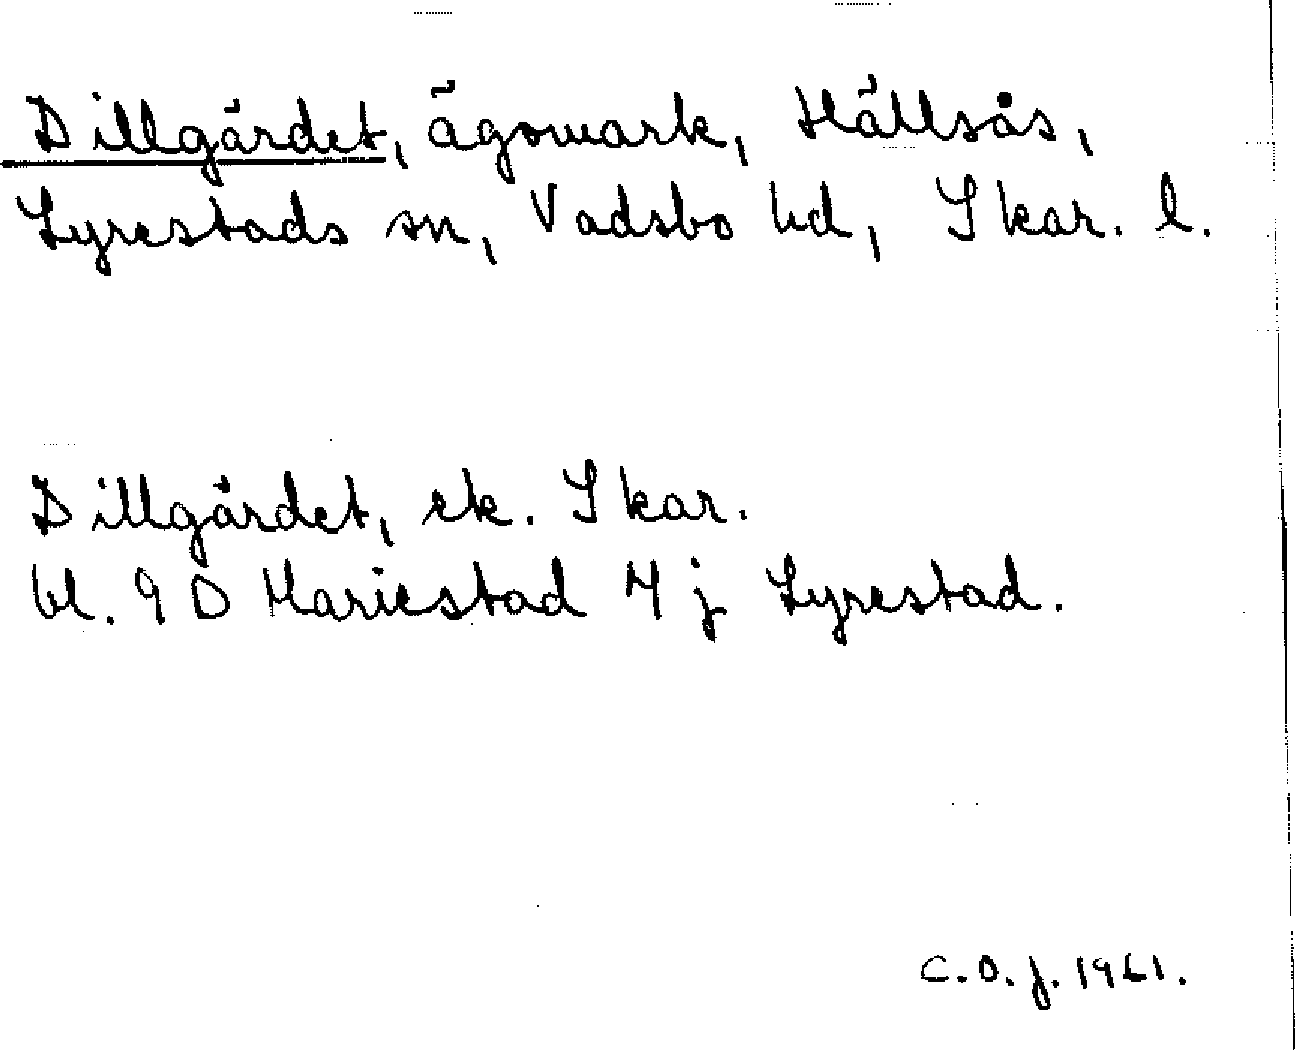 Dillgärdet, ägomark, Hällsås,
Lyrestads sn, Vadsbo hd, Skar. l.
Dillgärdet, ek. Skar.
bl. 9 D Mariestad 4 j Lyrestad.
C.O.J. 1961.